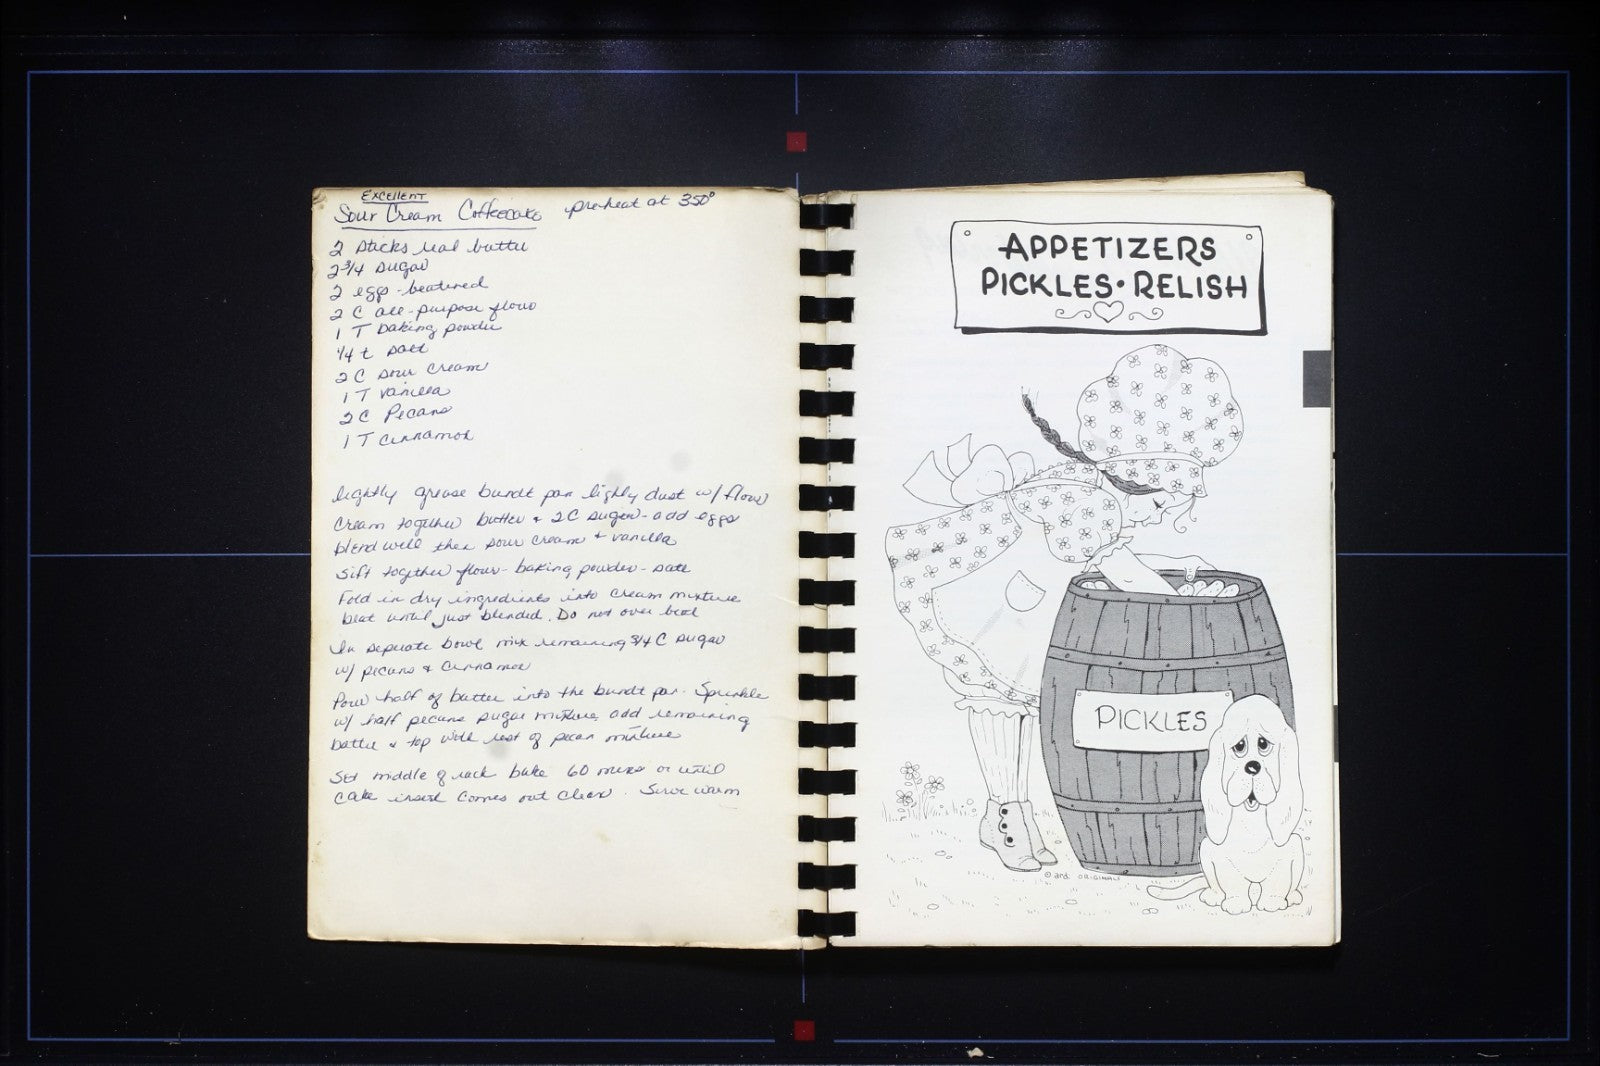 Excellent
Sour Cream Coffeecake preheat at 350°
2 sticks real butter
2 3/4 sugar
2 eggs - beatened
2 C all-purpose flour
1 T baking powder
1/4 t salt
2 C sour cream
1 T vanilla
2 C Pecans
1 T cinnamon
lightly grease bundt pan lightly dust w/ flour
Cream together butter + 2 C sugar - add eggs
blend well then sour cream + vanilla
Sift together flour - baking powder - salt
Fold in dry ingredients into cream mixture
beat until just blended. Do not over beat
In separate bowl mix remaining 3/4 C sugar
w/ pecans & cinnamon
Pour half of batter into the bundt pan. Sprinkle
w/ half pecans sugar mixture, add remaining
batter & top with rest of pecan mixture
Set middle of rack bake 60 mins or until
cake insert comes out clean. Serve warm
APPETIZERS
PICKLES • RELISH
PICKLES
© and ORIGINALS